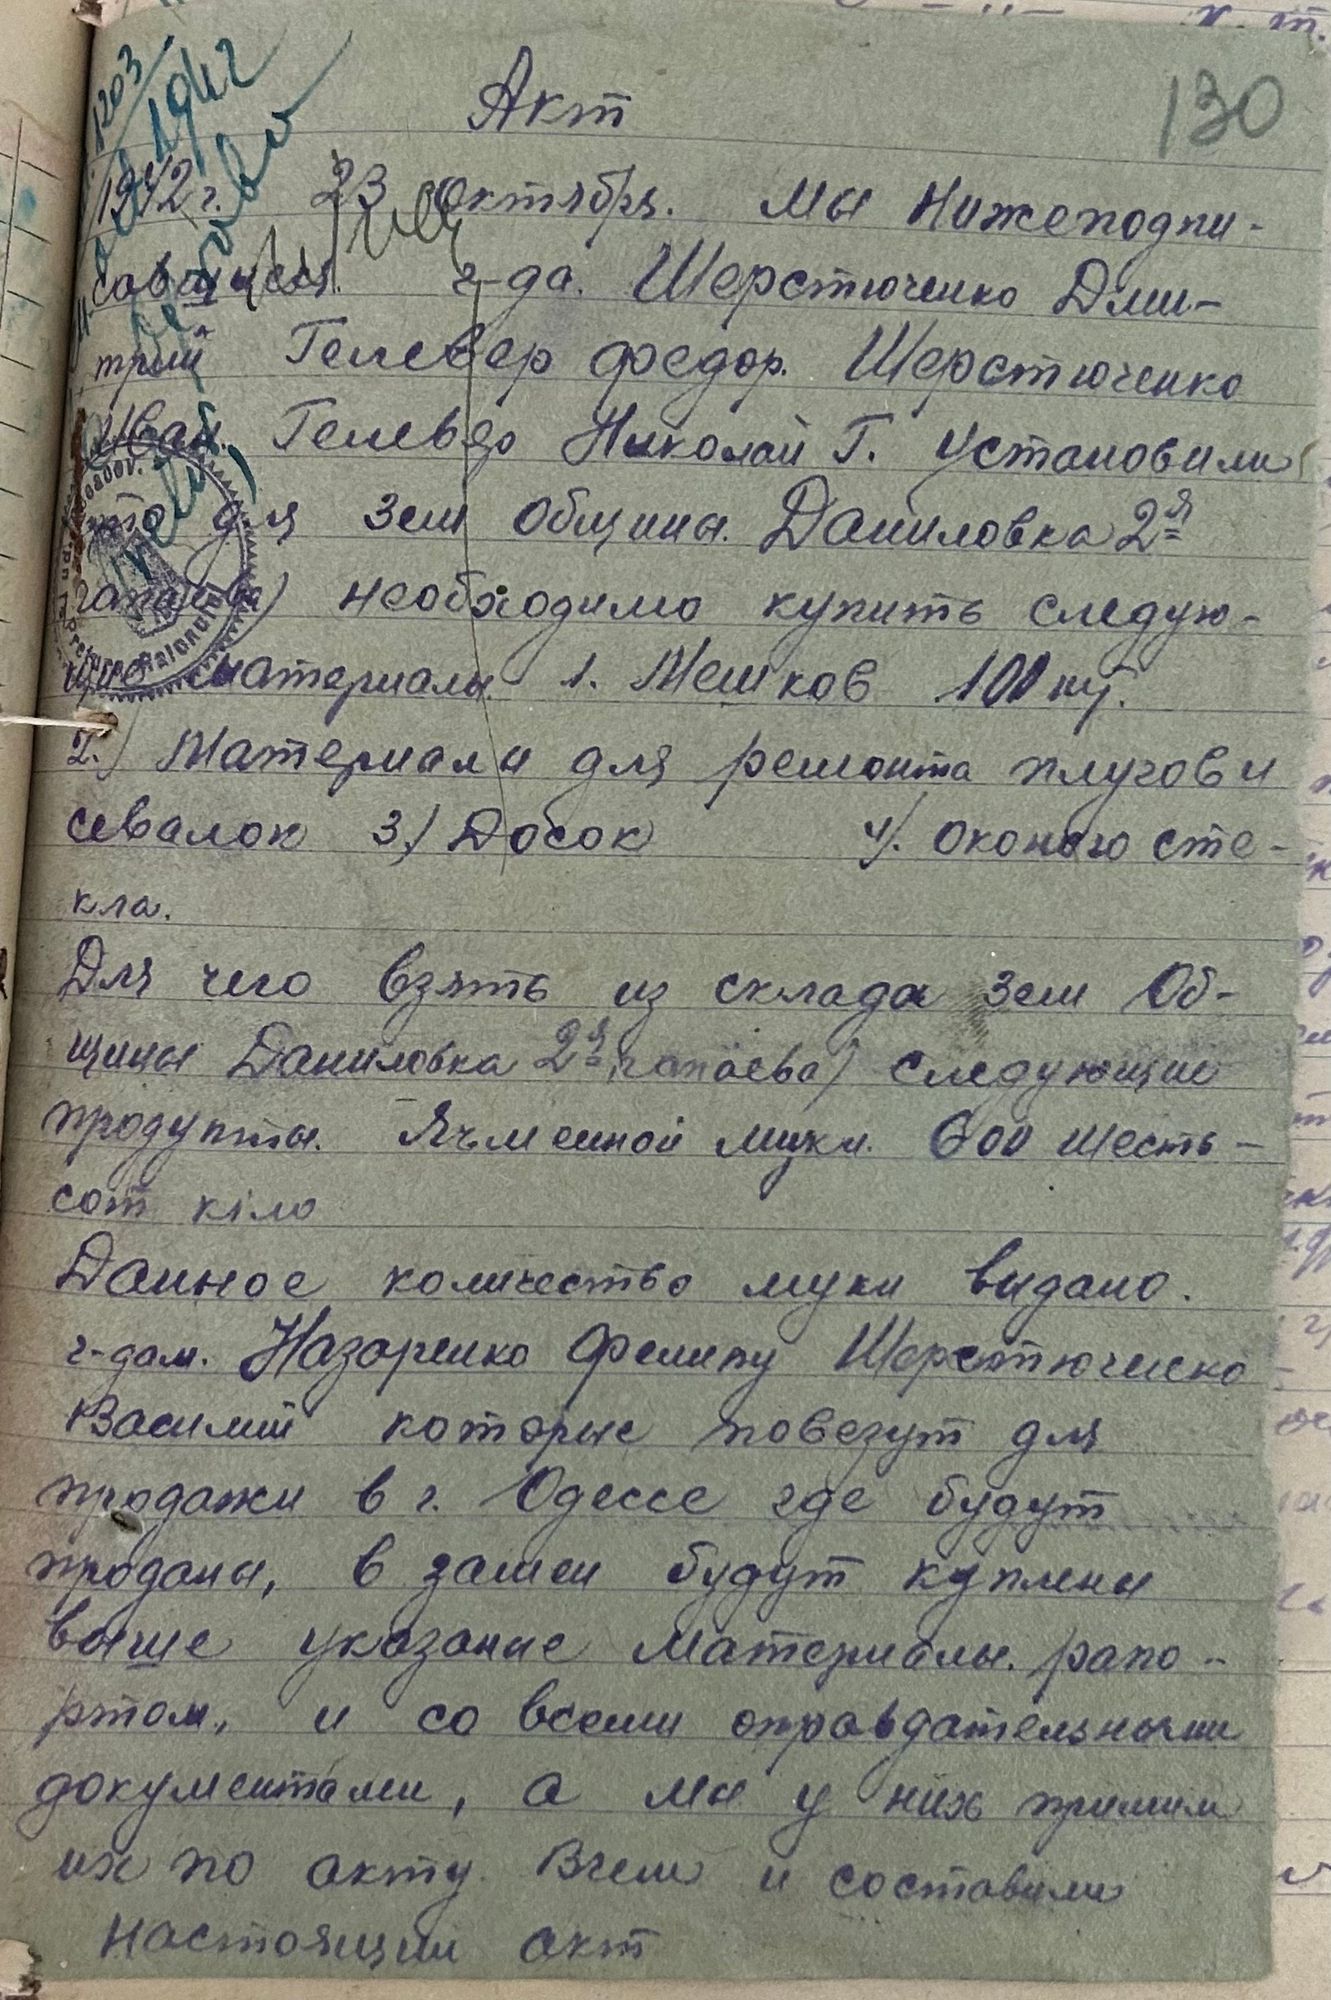 130
Акт
1942 г. 23 Октября. Мы Нижеподпи-
савшиеся. г-да. Шерстюченко Дми-
трий Гелевер федор. Шерстюченко
Иван. Гелевер Николай Г. установили
что для Зем Общины. Даниловка 2я
необходимо купить следую-
щие материалы 1. Мешков 100 шт.
2.) Материали для ремонта плугов и
севалок 3.) Досок 4). оконого сте-
кла.
Для чего взять из склада Зем Об-
щины Даниловка 2я чапаева) следующие
продукты. Ячменной муки. 600 шесть-
сот кіло
Данное количество муки видано.
г-дам. Назаренко Филипу Шерстюченко
Василий которые повезут для
продажи в г. Одессе где будут
проданы, в замен будут куплены
выше указаные материалы. рапо-
ртом, и со всеми оправдательными
документами, а мы у них примим
их по акту. Вчем и составили
настоящий акт
1203
1942
Pretura Raionului